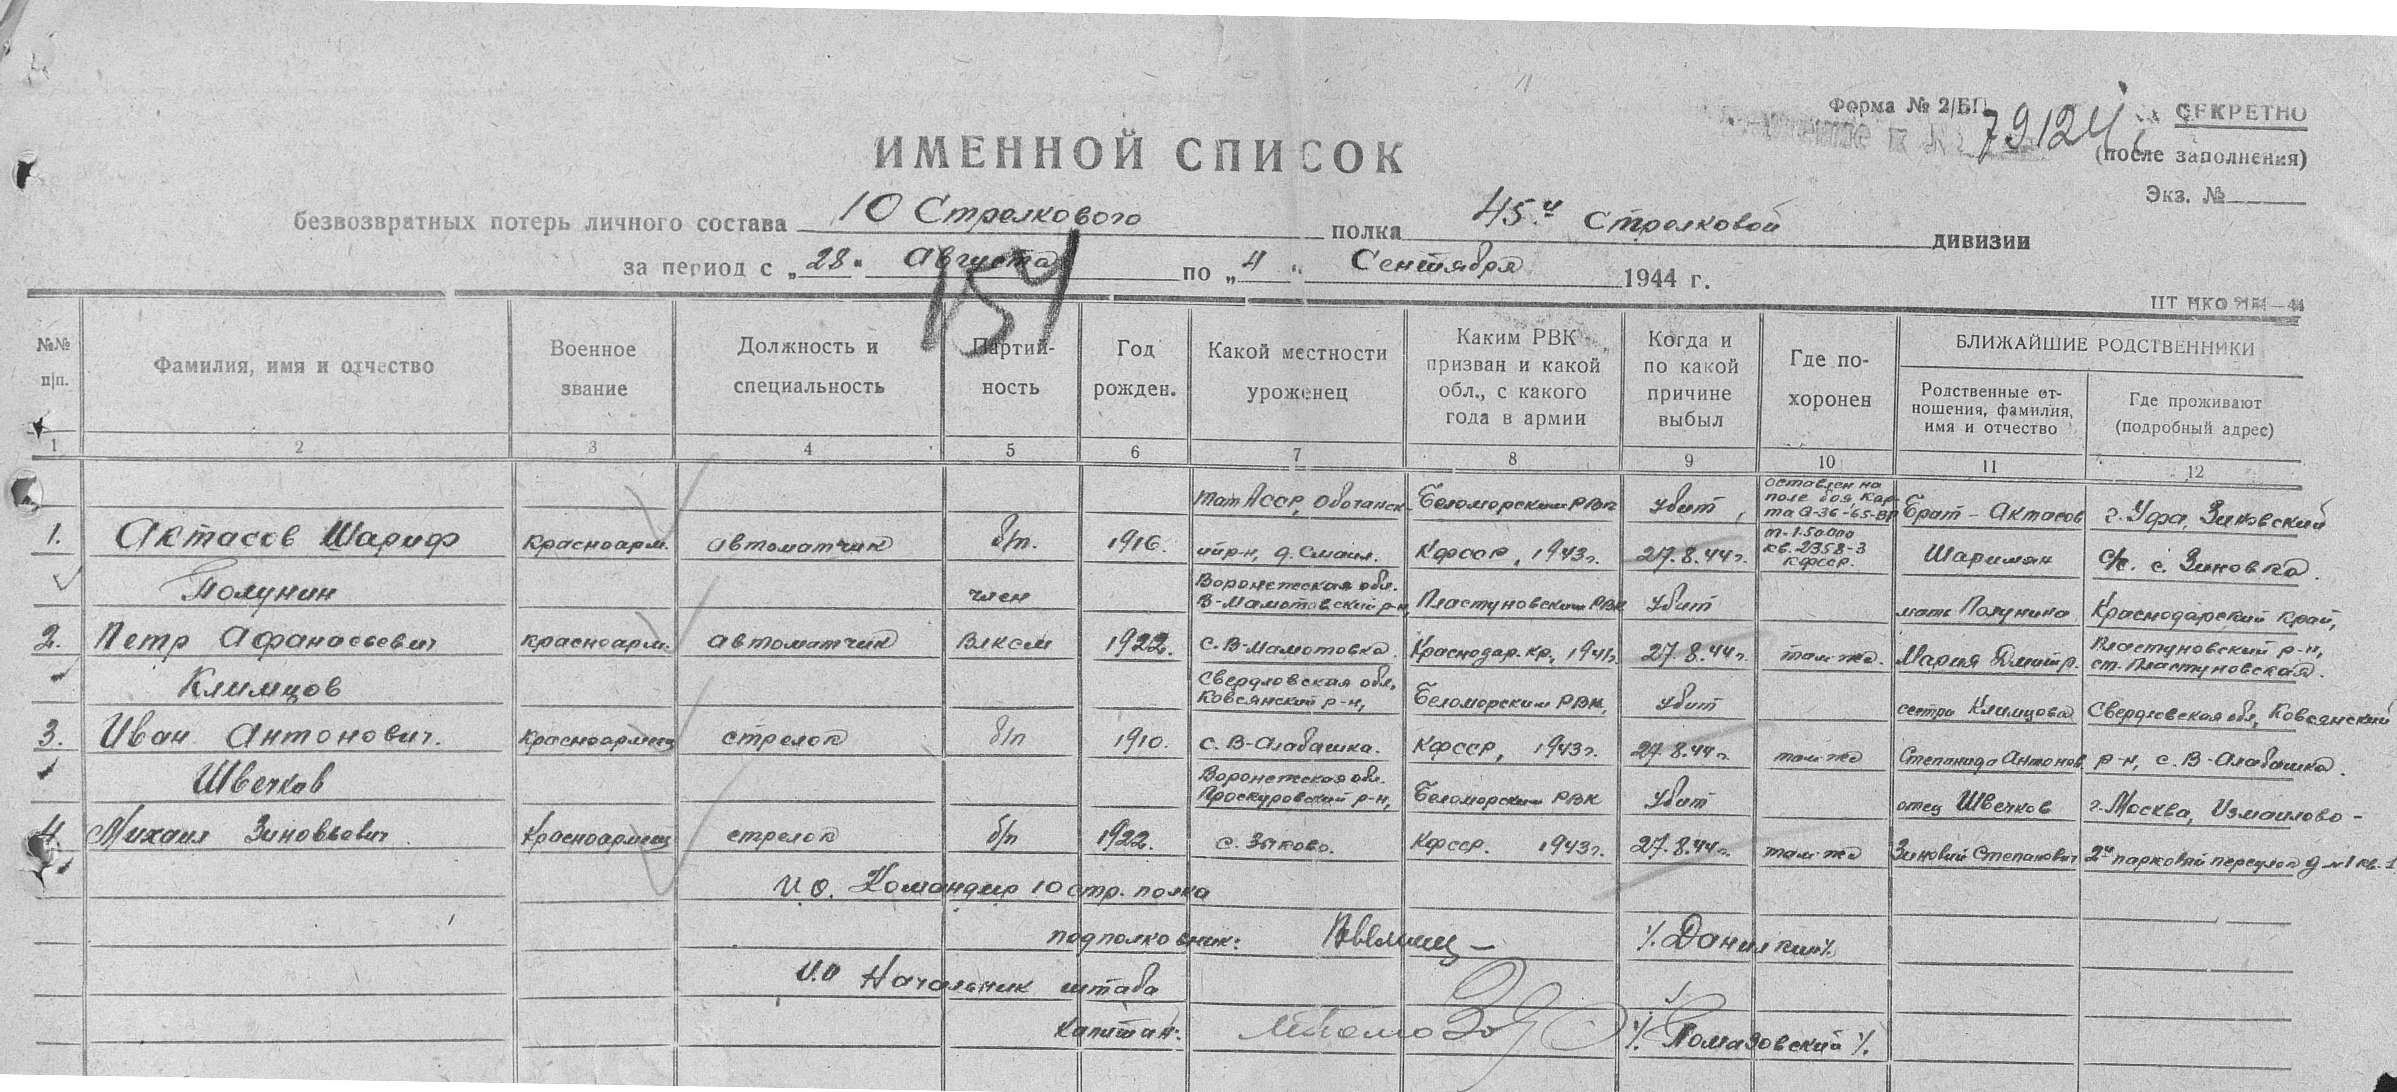 Форма № 2/БП
79124с
СЕКРЕТНО
(после заполнения)
Экз. №
ИМЕННОЙ СПИСОК
безвозвратных потерь личного состава 10 Стрелкового полка 45й Стрелковой дивизии
за период с „28" Августа по „4" Сентября 1944 г.
154
№№ п|п.
Фамилия, имя и отчество
Военное звание
Должность и специальность
Партий-ность
Год рожден.
Какой местности уроженец
Каким РВК призван и какой обл., с какого года в армии
Когда и по какой причине выбыл
Где по-хоронен
БЛИЖАЙШИЕ РОДСТВЕННИКИ
Родственные от-ношения, фамилия, имя и отчество
Где проживают (подробный адрес)
1 2 3 4 5 6 7 8 9 10 11 12
1. Актасов Шариф красноарм. автоматчик б/п. 1916. тат АССР, р-н, д. Смаил. Беломорским РВК КФССР, 1943г. Убит, 27.8.44г. оставлен на поле боя Кар-та Q-36-65-ВГ м-1.50.000 кв. 2358-3 КФССР. Брат - Актасов г. Уфа, Зиковский с/с. с. Зиновка.
2. Полунин Петр Афанасьевич красноарм. автоматчик член ВЛКСМ 1922. Воронежская обл. В-Мамотовский р-н, с. В-Мамотовка. Пластуновским РВК Краснодар. кр, 1941г. Убит 27.8.44г. там же. мать Полунина Мария Дмитр. Краснодарский край, Пластуновский р-н, ст. Пластуновская.
3. Климцов Иван Антонович. Красноармеец стрелок б/п 1910. Свердловская обл, Ковсянский р-н, с. В-Алабашка. Беломорским РВК, КФССР, 1943г. Убит 27.8.44г. там же сестра Климцова Степанида Антонов. Свердловская обл, Ковсянский р-н, с. В-Алабашка.
4. Швечков Михаил Зиновьевич Красноармеец стрелок б/п 1922. Воронежская обл. Проскуровский р-н, с. Зыково. Беломорским РВК КФССР. 1943г. Убит 27.8.44г. там же отец Швечков Зиновий Степанович г. Москва, Измайлово - 2й парковый переулок д №1 кв. 1
И.О. Командир 10 стр. полка
подполковник: /Данилкин/.
И.О Начальник штаба
Капитан: /Помазовский/.